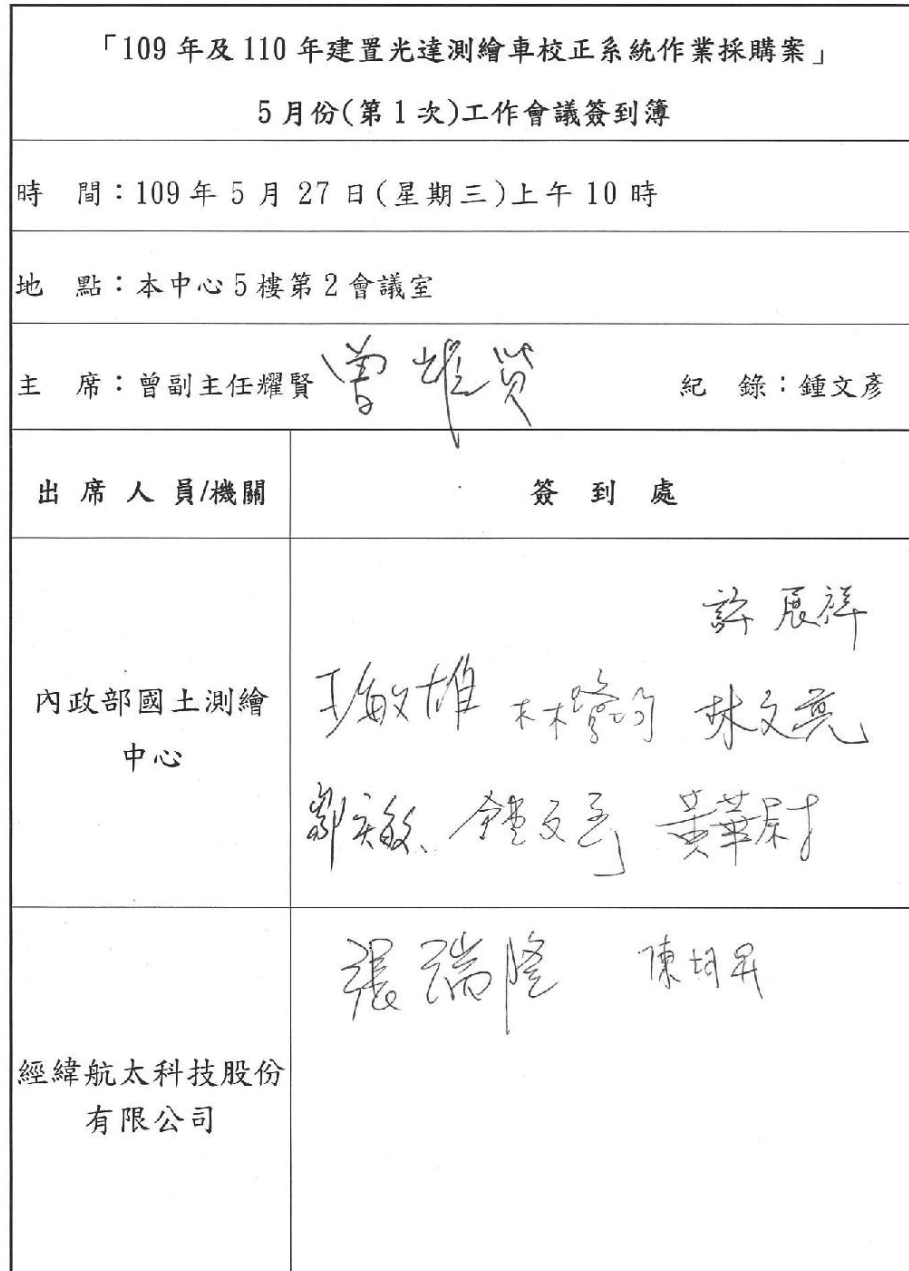 「109 年及 110 年建置光達測繪車校正系統作業採購案」
5 月份(第 1 次)工作會議簽到簿
時 間：109 年 5 月 27 日(星期三)上午 10 時
地 點：本中心 5 樓第 2 會議室
主 席：曾副主任耀賢 曾耀賢 紀 錄：鍾文彥
出 席 人 員/機關 簽 到 處
許展祥
內政部國土測繪
中心
王敏雄 林文亮
鄭 鍾文彥 黃華尉
張瑞隆 陳
經緯航太科技股份
有限公司